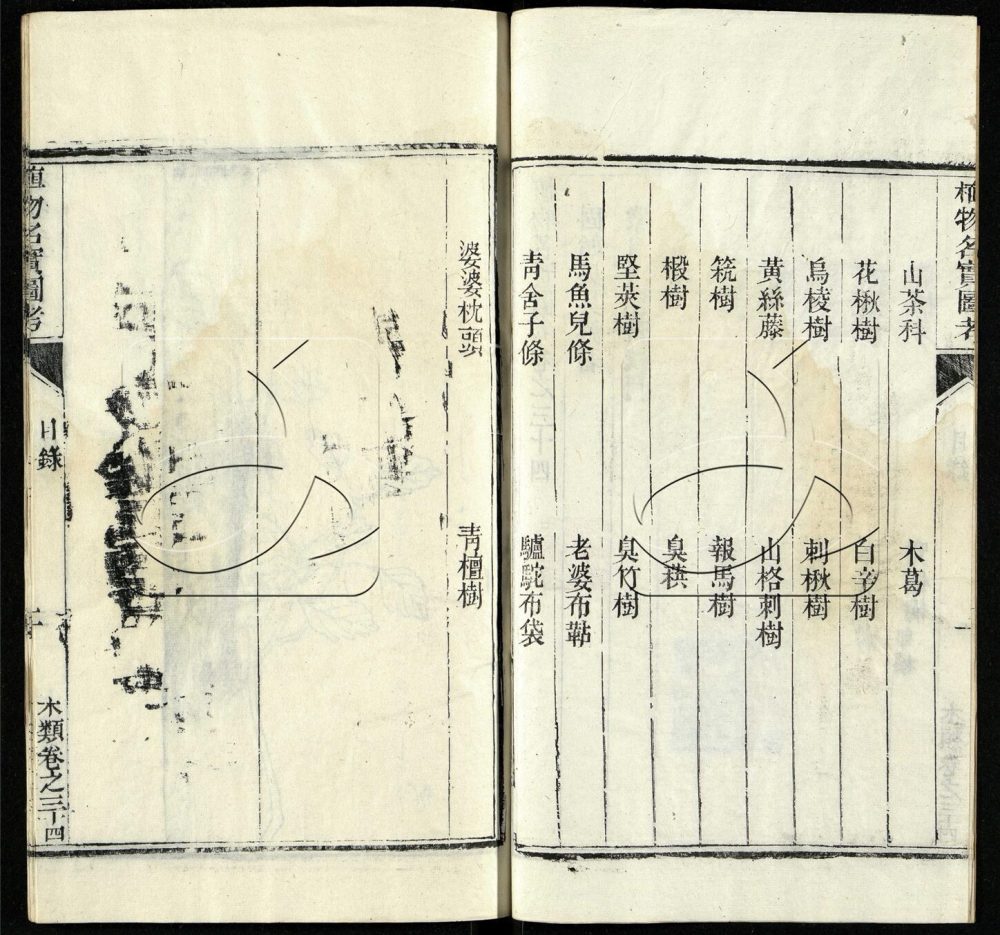 植物名實圖考
山茶科
木葛
花楸樹
白辛樹
烏棱樹
刺楸樹
黃絲藤
山格刺樹
筦樹
報馬樹
椴樹
臭蕻
堅莢樹
臭竹樹
馬魚兒條
老婆布鞊
青舍子條
驢駝布袋
婆婆枕頭
青檀樹
植物名實圖考
目錄
木類卷之三十四